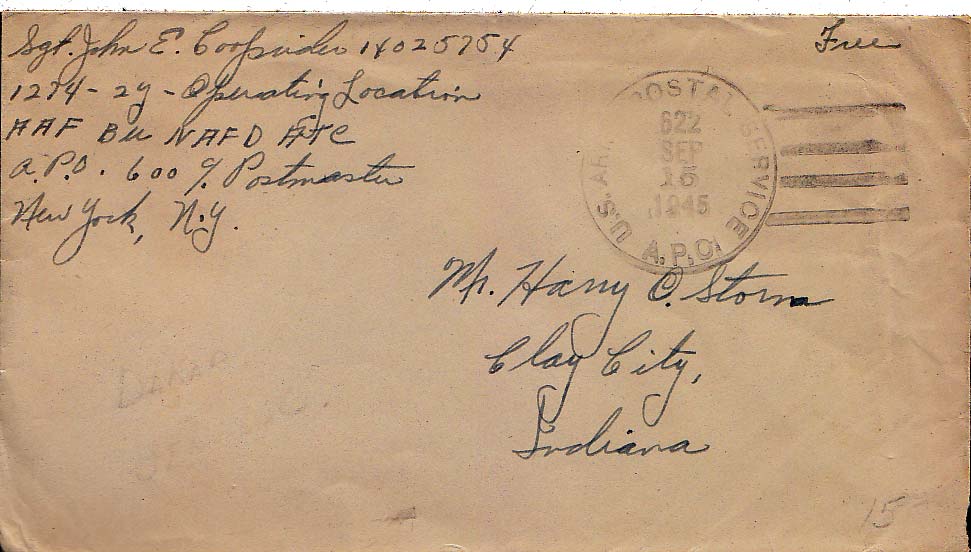 Sgt. John E. Cooprider 14025754
Free
1274-2y-Operating Location
AAF BU NAFD ATC
A.P.O. 600 % Postmaster
New York, N.Y.
U.S. AR POSTAL SERVICE
622
SEP
15
1945
A.P.O.
Mr. Harry C. Storm
Clay City,
Indiana
DAKAR
15